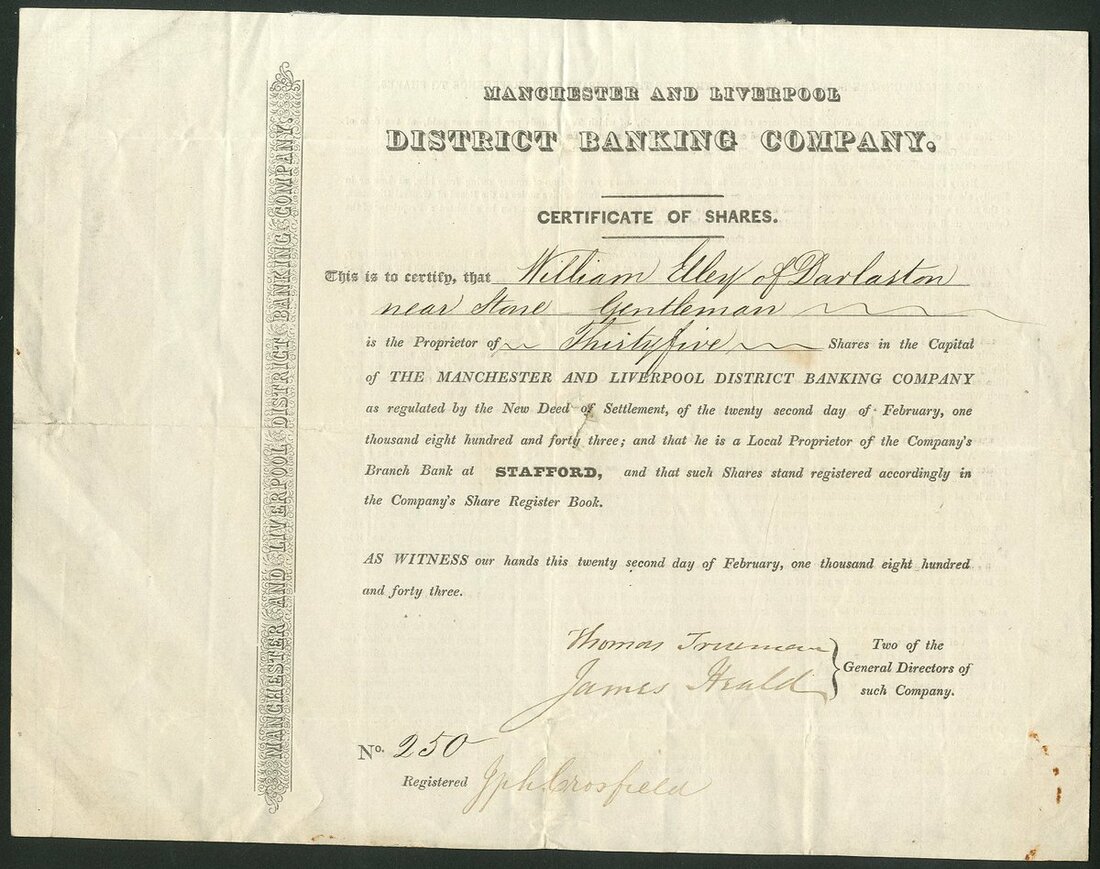 MANCHESTER AND LIVERPOOL DISTRICT BANKING COMPANY.
MANCHESTER AND LIVERPOOL
DISTRICT BANKING COMPANY.
CERTIFICATE OF SHARES.
This is to certify, that William Elley of Darlaston
near Stone Gentleman
is the Proprietor of Thirtyfive Shares in the Capital
of THE MANCHESTER AND LIVERPOOL DISTRICT BANKING COMPANY
as regulated by the New Deed of Settlement, of the twenty second day of February, one
thousand eight hundred and forty three; and that he is a Local Proprietor of the Company's
Branch Bank at STAFFORD, and that such Shares stand registered accordingly in
the Company's Share Register Book.
AS WITNESS our hands this twenty second day of February, one thousand eight hundred
and forty three.
Thomas Trueman
James Heald
Two of the
General Directors of
such Company.
No. 250
Registered Jph Crosfield